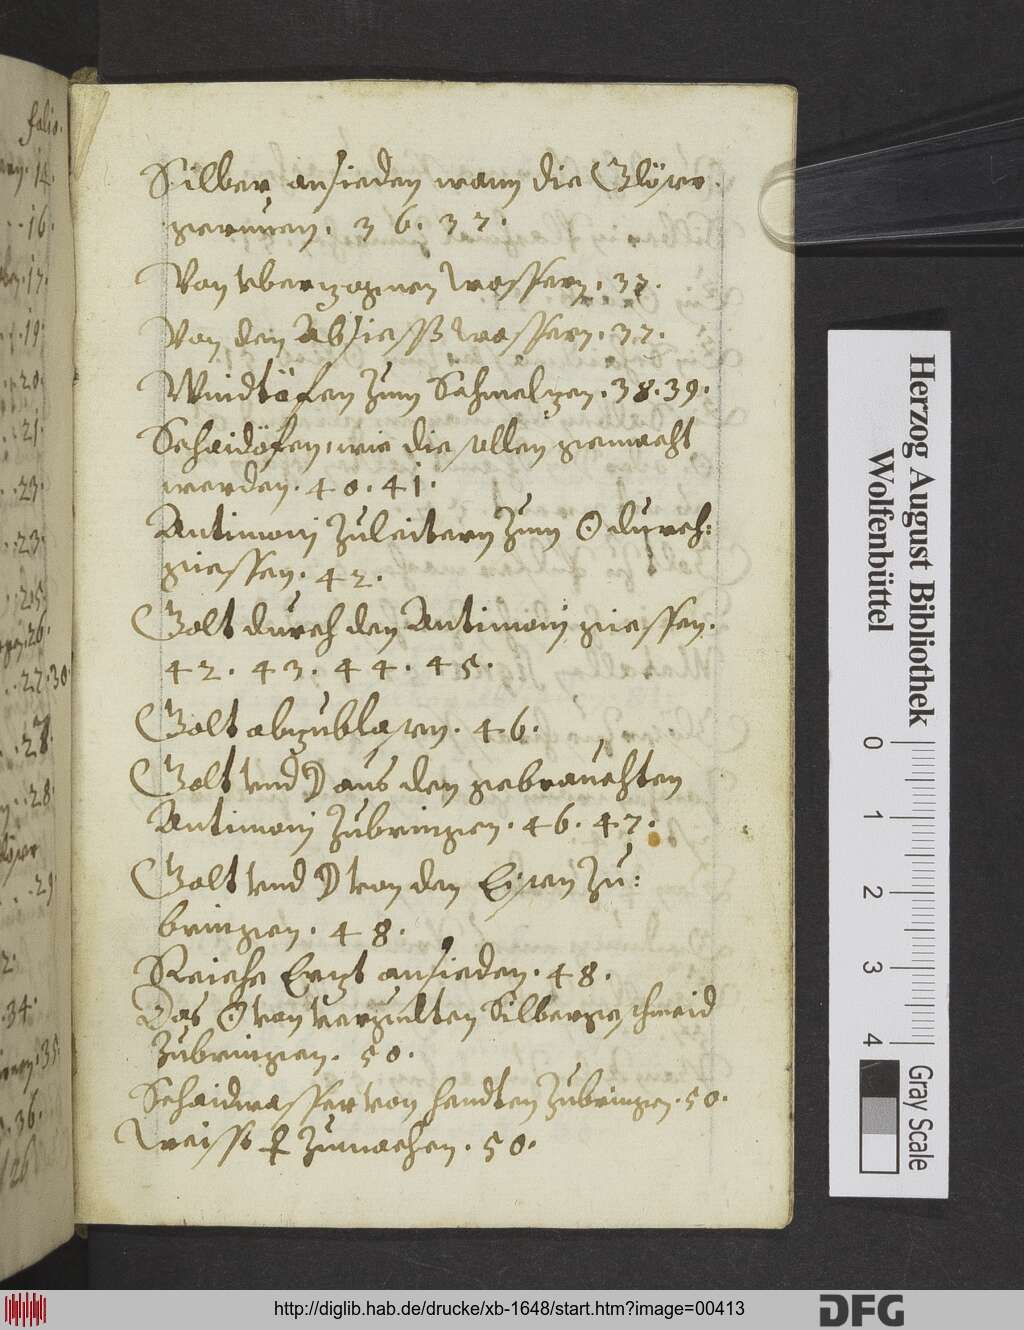 folio.
14.
16.
17.
19.
20.
21.
23.
23.
25.
26.
27.30.
28.
28.
29.
34.
35.
36.
Silber ansieden wann die Glöser
zerinnen. 36. 37.
Von vberzognen wassern. 37.
Von den Absiess wassern. 37.
Windtöfen zum Schmeltzen. 38. 39.
Schaidöfen, wie die sollen gemacht
werden. 40. 41.
Antimoni zuleitern zum ☉ durch:
giessen. 42.
Golt durch den Antimoni giessen.
42. 43. 44. 45.
Golt abzublasen. 46.
Golt vnd ☽ aus den gebrauchten
Antimoni zubringen. 46. 47.
Golt vnd ☽ von den Eysen zu:
bringen. 48.
Reiche Ertzt ansieden. 48.
Das ☉ von vergulten Silbergeschmeid
zubringen. 50.
Schaidwasser von hendten zubringen. 50.
Weiss ♀ zumachen. 50.
Herzog August Bibliothek
Wolfenbüttel
0 1 2 3 4
Gray Scale
http://diglib.hab.de/drucke/xb-1648/start.htm?image=00413
DFG